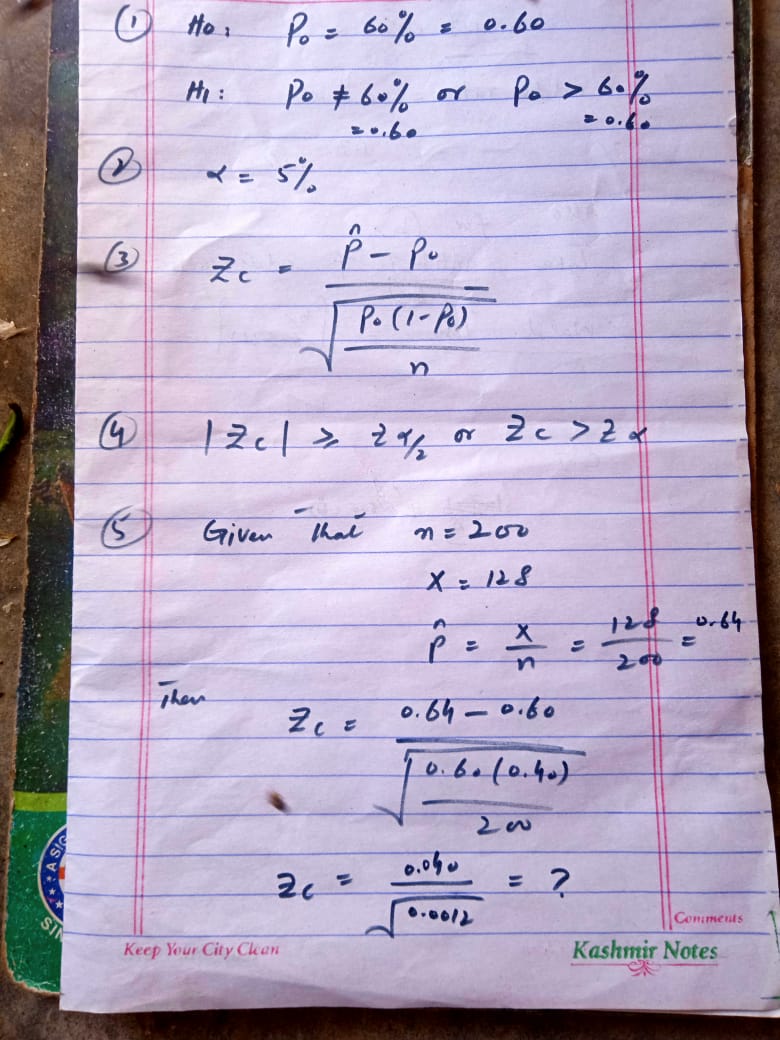 ① Ho: P₀ = 60% = 0.60
H₁: P₀ ≠ 60% or P₀ > 60%
= 0.60 = 0.60
② α = 5%
③ Zc = p̂ - P₀
√ P₀(1-P₀)
n
④ |Zc| ≥ Z α/2 or Zc > Z α
⑤ Given That n = 200
X = 128
p̂ = X/n = 128/200 = 0.64
Then
Zc = 0.64 - 0.60
√ 0.60(0.40)
200
Zc = 0.040 / √0.0012 = ?
Comments
Keep Your City Clean Kashmir Notes
A SIG
SIN